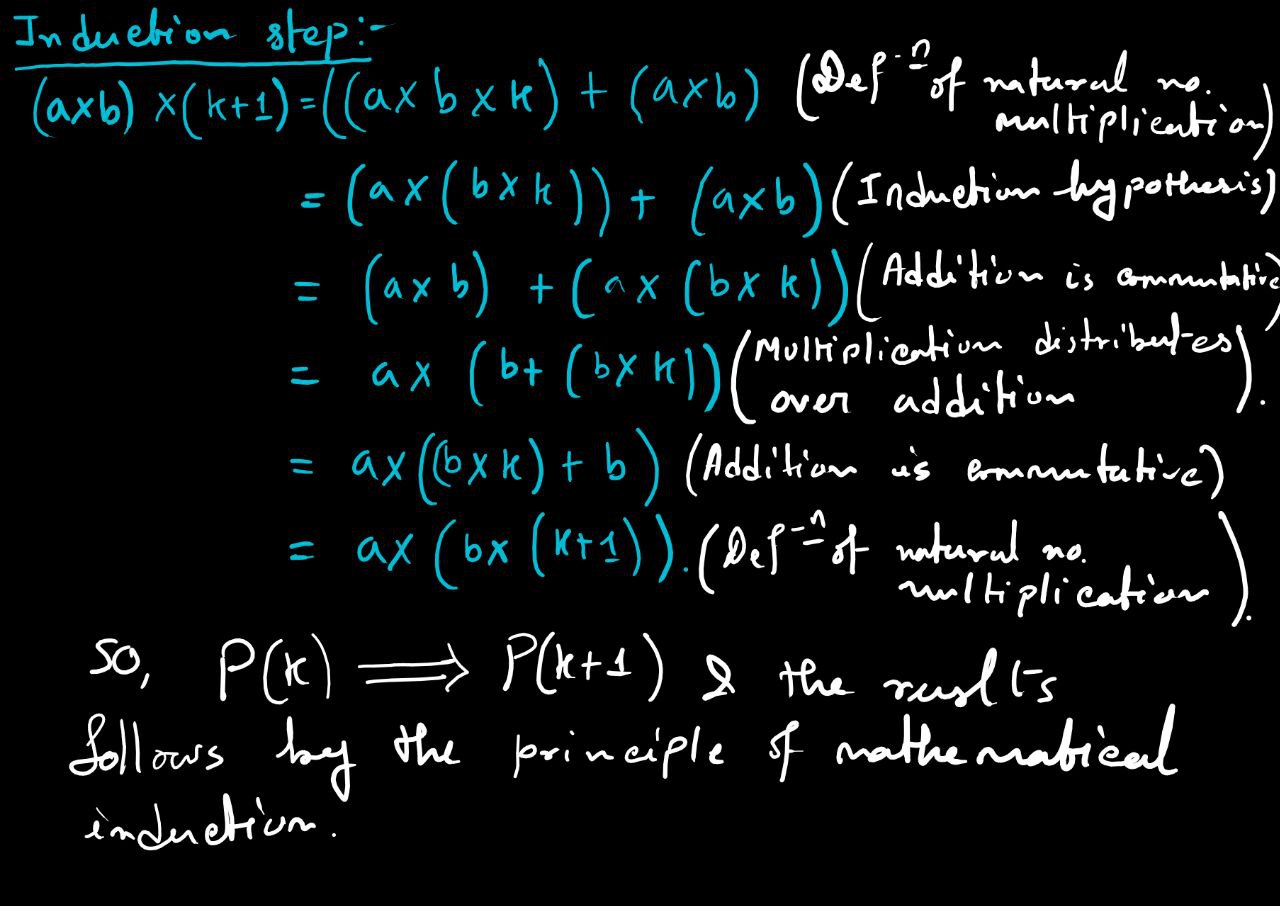 Induction step:-
(a×b) ×(k+1)=((a× b × k) + (a×b) (Def-n of natural no. multiplication)
= (a×(b×k)) + (a×b) (Induction hypothesis)
= (a× b) + (a× (b× k)) (Addition is commutative)
= a× (b+ (b× k)) (Multiplication distributes
over addition).
= a×((b×k) + b) (Addition is commutative)
= a× (b× (k+1)). (Def-n of natural no.
multiplication).
SO, P(k) ⟹ P(k+1) & the results
follows by the principle of mathematical
induction.